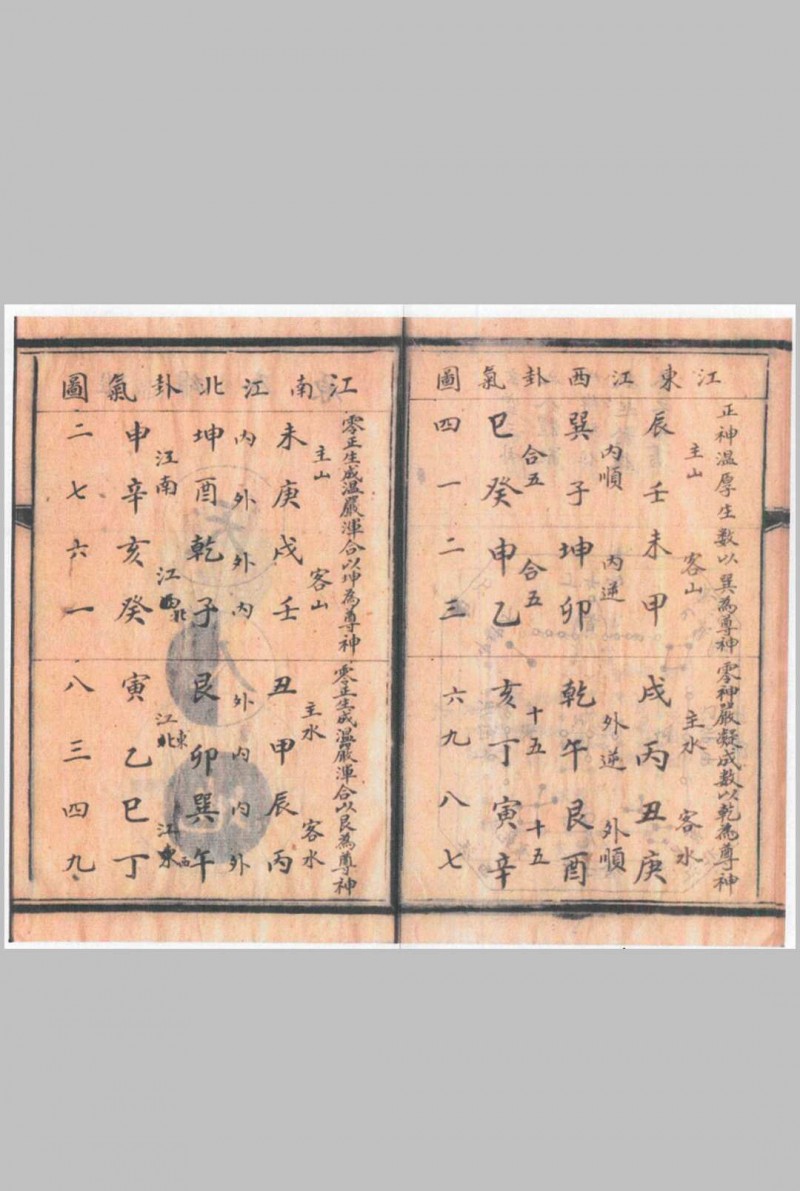 江東江西卦氣圖
正神溫厚生數以巽為尊神
零神嚴凝成數以乾為尊神
主山 客山 主水 客水
辰壬未甲戌丙丑庚
內順 內逆 外逆 外順
巽子坤卯乾午艮酉
合五 合五 十五 十五
巳癸申乙亥丁寅辛
四一二三六九八七
江南江北卦氣圖
零正生成溫嚴渾合以坤為尊神
零正生成溫嚴渾合以艮為尊神
主山 客山 主水 客水
未庚戌壬丑甲辰丙
內外外內外內內外
坤酉乾子艮卯巽午
江南 江北 江北東 江東西
申辛亥癸寅乙巳丁
二七六一八三四九